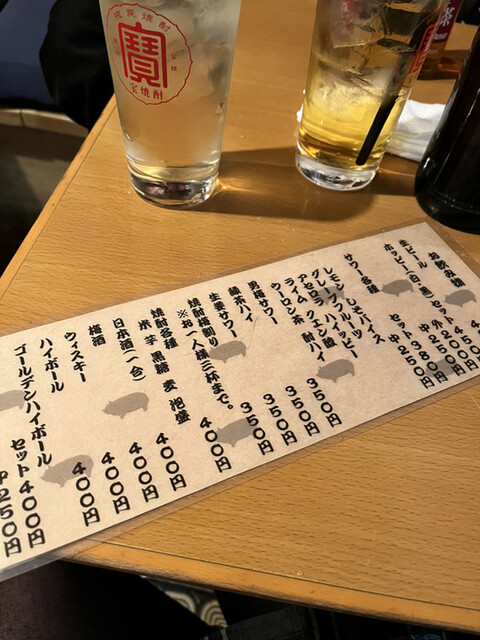 純良焼酎
寳
宝焼酎
茶
お飲み物
生ビール
ホッピー(白・黒)セット
サワー各種
レモン フルーツ しそバイス
グレープ ハイッピー
アセロラ クエン酸
ライム 酎ハイ
ウーロン茶
350円
男梅サワー 350円
緑茶ハイ 350円
生姜サワー 350円
焼酎梅割り 400円
※お一人様三杯まで。
焼酎各種 400円
米 芋 黒糖 麦 泡盛
日本酒(一合) 400円
梅酒 400円
ウィスキー 400円
ハイボール
ゴールデンハイボール
セット400円
中250円